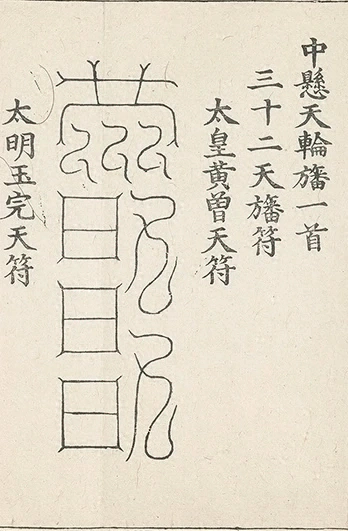 中懸天輪旛一首
三十二天旛符
太皇黃曾天符
太明玉完天符